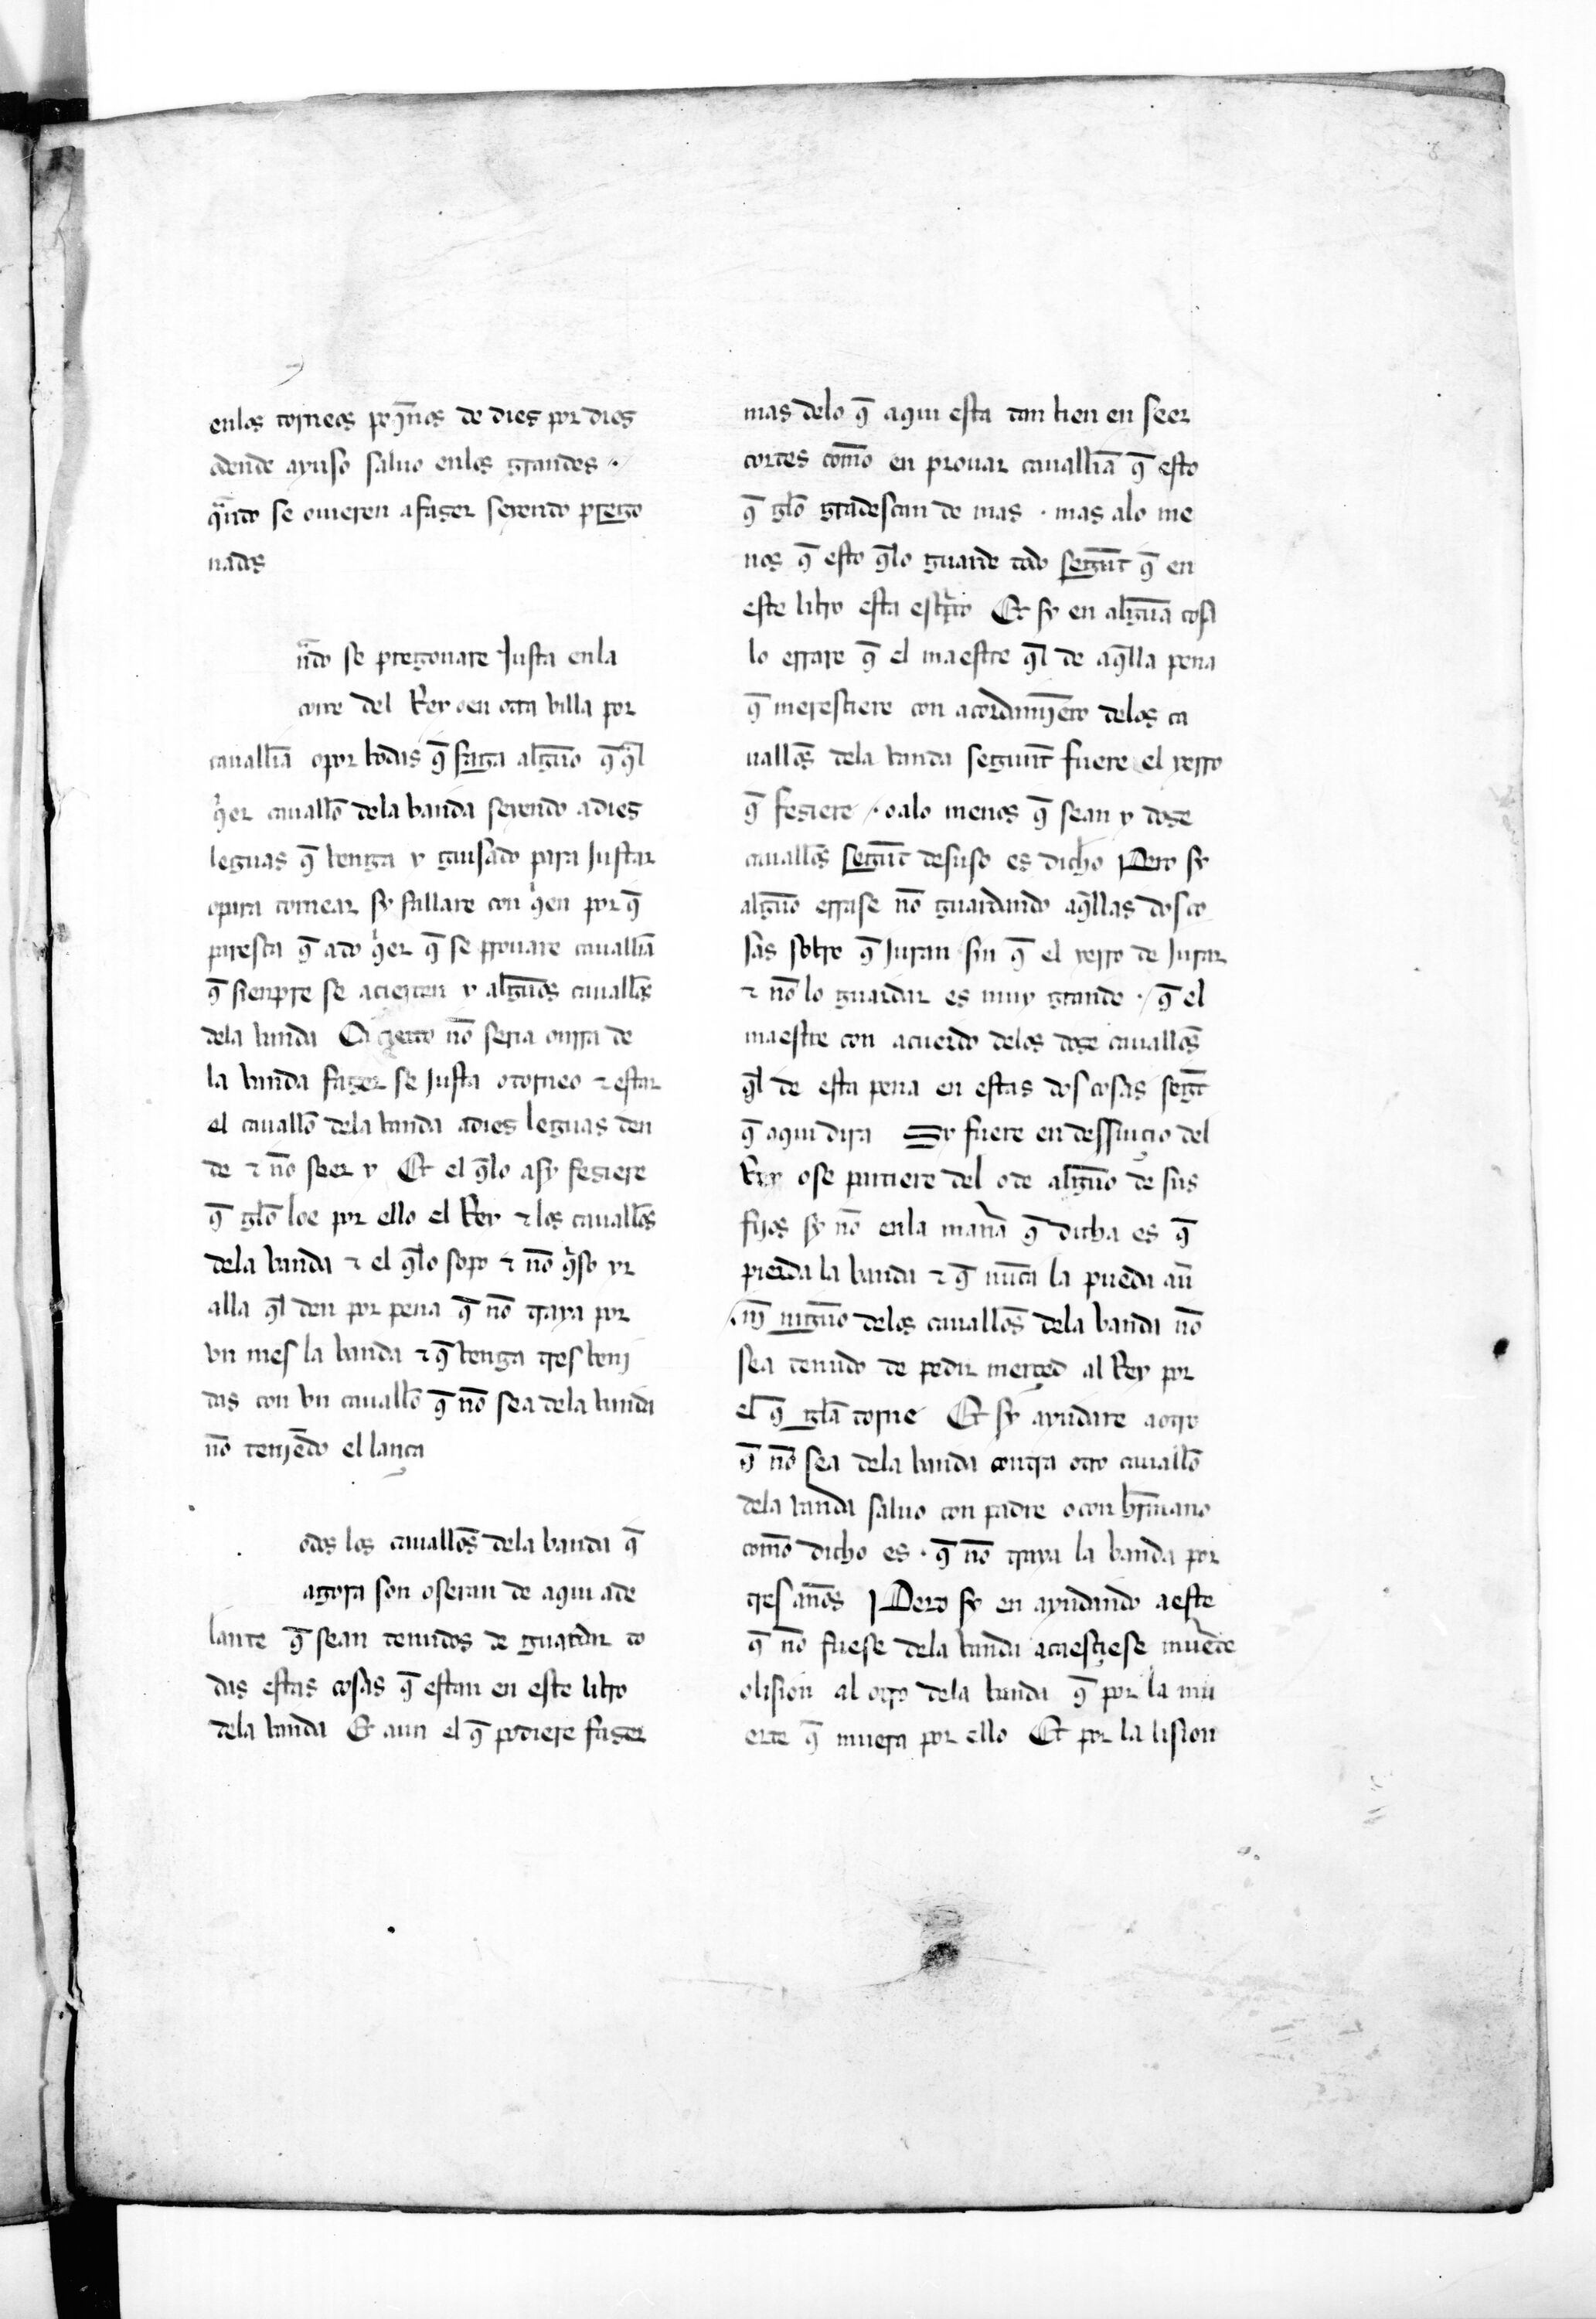 enlos torneos peq̃nos de dies por dies
dende ayuso saluo enlos grandes ·
qñdo se ouieren afazer seyendo prego
nados
ñdo se pregonare Justa enla
corte del Rey oen otra villa por
cauall̃ia opor bodas q̃ faga alguño q̃ q̃l
q̃er cauall̃o dela banda seyendo adies
leguas q̃ venga y guisado para Justar
opara tornear sy fallare con q̃en por q̃
paresca q̃ ado q̃er q̃ se prouare cauall̃ia
q̃ sienpre se acierten y alguños cauall̃os
dela banda Ca çierto nõ seria onrra de
la banda fazer se Justa otorneo ⁊ estar
el cauall̃o dela banda adies leguas den
de ⁊ nõ seer y Et el q̃lo asy feziere
q̃ gl̃o loe por ello el Rey ⁊ los cauall̃os
dela banda ⁊ el q̃lo sopo ⁊ nõ q̃so yr
alla q̃l den por pena q̃ nõ traya por
vn mes la banda ⁊ q̃ venga tres veni
das con vn cauall̃o q̃ nõ sea dela banda
nõ teniẽdo el lança
odos los cauall̃os dela banda q̃
agora son oseran de aqui ade
lante q̃ sean tenudos de guardar to
das estas cosas q̃ estan en este libro
dela banda Et aun el q̃ podiere fazer
mas delo q̃ aqui esta tan bien en seer
cortes com̃o en prouar cauall̃ia q̃ esto
q̃ gl̃o gradescan de mas · mas alo me
nos q̃ esto q̃lo guarde todo segunt̃ q̃ en
este libro esta escp̃to Et sy en alguña cosa
lo errare q̃ el maestre q̃l de aq̃lla pena
q̃ meresciere con acordamiẽto delos ca
uall̃os dela banda segunt̃ fuere el yerro
q̃ feziere · oalo menos q̃ sean y doze
cauall̃os segunt̃ desuso es dicho Pero sy
alguño errase nõ guardando aq̃llas dos co
sas sobre q̃ Juran syn q̃ el yerro de Jurar
⁊ nõ lo guardar es muy grande · q̃ el
maestre con acuerdo delos doze cauall̃os
q̃l de esta pena en estas dos cosas segt̃
q̃ aqui dira Sy fuere en desseruiçio del
Rey ose partiere del ode alguño de sus
fijos sy nõ enla mañra q̃ dicha es q̃
pierda la banda ⁊ q̃ nũca la pueda auer
nĩ niguño delos cauall̃os dela banda nõ
sea tenudo de pedir merçed al Rey por
el q̃ gl̃a torne Et sy ayudare aotro
q̃ nõ sea dela banda contra otro cauall̃o
dela banda saluo con padre ocon hr̃mano
com̃o dicho es · q̃ nõ traya la banda por
tres años Pero sy en ayudando aeste
q̃ nõ fuese dela banda acaesçiese muerte
olision al otro dela banda q̃ por la mu
erte q̃ muera por ello Et por la lision